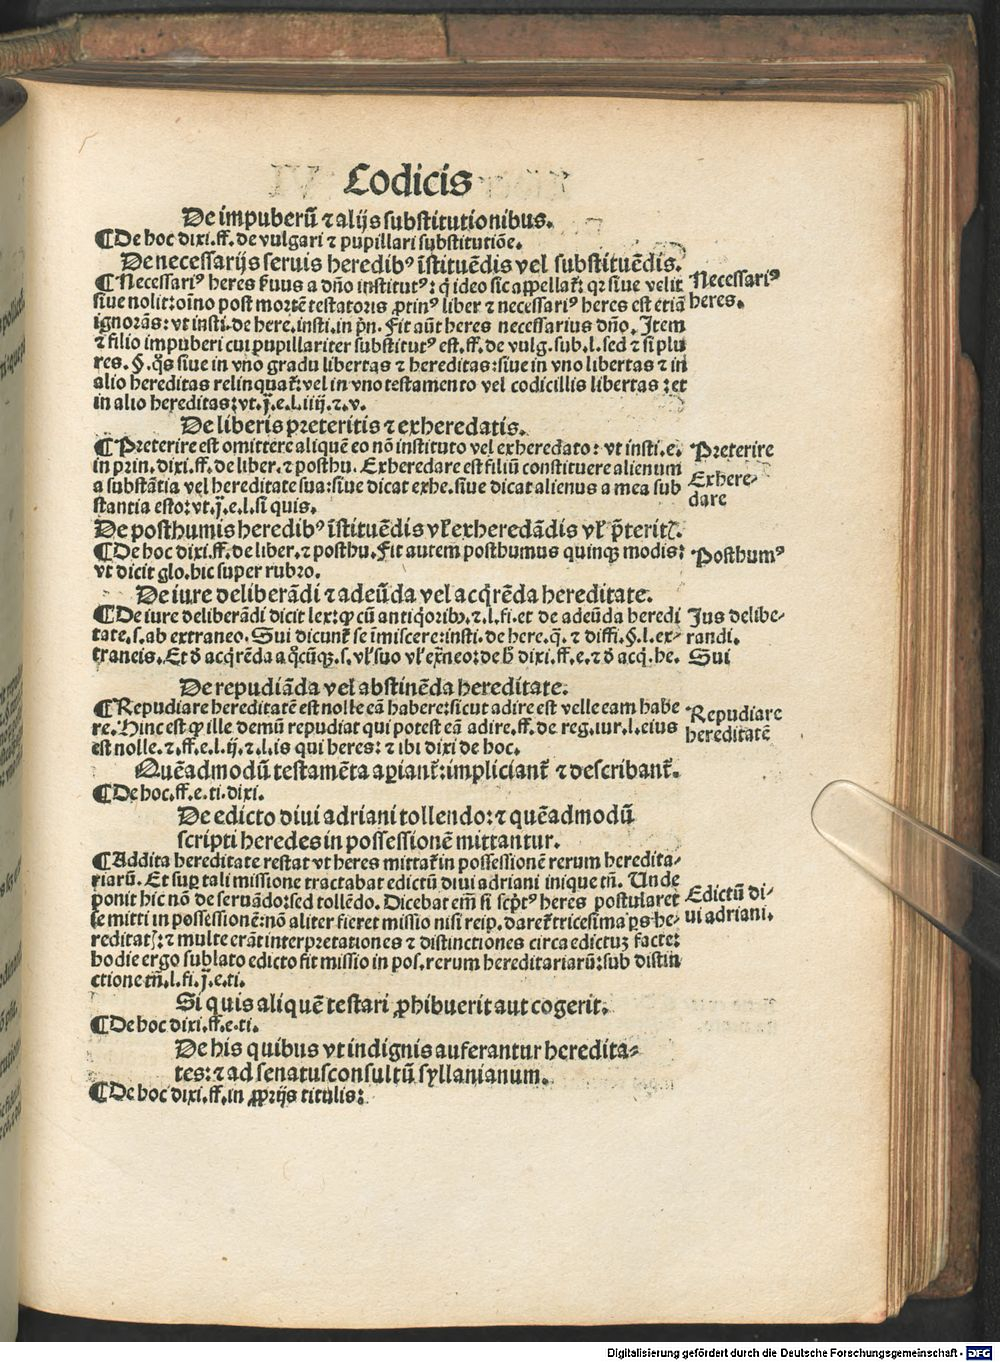 Codicis
De impuberū ⁊ alijs substitutionibus.
¶De hoc dixi.ff. de vulgari ⁊ pupillari substitutiōe.
De necessarijs seruis heredibꝰ īstituēdis vel substituēdis.
¶Necessariꝰ heres seruus a dño institutꝰ: q̇ ideo sic appellat᷑: qꝛ siue velit
siue nolit: oīno post mortē testatoris ꝓtinꝰ liber ⁊ necessariꝰ heres est etiā
ignorās: vt insti. de here. insti. in pñ. Fit aūt heres necessarius dño. Item
⁊ filio impuberi cui pupillariter substitutꝰ est. ff. de vulg. sub. l. sed ⁊ si plu
res. §. q̇s siue in vno gradu libertas ⁊ hereditas: siue in vno libertas ⁊ in
alio hereditas relinquat᷑: vel in vno testamento vel codicillis libertas: et
in alio hereditas: vt. j̄. e. l. iiij. ⁊. v.
Necessariꝰ
heres.
De liberis preteritis ⁊ exheredatis.
¶Preterire est omittere aliquē eo nō instituto vel exheredato: vt insti. e.
in prin. dixi. ff. de liber. ⁊ posthu. Exheredare est filiū constituere alienum
a substātia vel hereditate sua: siue dicat exhe. siue dicat alienus a mea sub
stantia esto: vt. j̄. e. l. si quis.
Preterire
Exhere-
dare
De posthumis heredibꝰ īstituēdis vl̓ exheredādis vl̓ p̄terit᷑.
¶De hoc dixi. ff. de liber. ⁊ posthu. Fit autem posthumus quinqꝫ modis:
vt dicit glo. hic super rubro.
Posthumꝰ
De iure deliberādi ⁊ adeūda vel acq̇rēda hereditate.
¶De iure deliberādi dicit lex: ꝙ cū antiq̇oribꝰ. ⁊. l. fi. et de adeūda heredi
tate. s. ab extraneo. Sui dicunt᷑ se īmiscere: insti. de here. q̄. ⁊ diffi. §. l. ex-
traneis. Et d̓ acq̇rēda a q̇cūqꝫ. s. vl̓ suo vl̓ ex̄neo: de h̓ dixi. ff. e. ⁊ d̓ acq̇. he.
Jus delibe-
randi.
Sui
De repudiāda vel abstinēda hereditate.
¶Repudiare hereditatē est nolle eā habere: sicut adire est velle eam habe
re. Hinc est ꝙ ille demū repudiat qui potest eā adire. ff. de reg. iur. l. eius
est nolle. ⁊. ff. e. l. ij. ⁊. l. is qui heres: ⁊ ibi dixi de hoc.
Repudiare
hereditatē
Quēadmodū testamēta apiant᷑: impliciant᷑ ⁊ describant᷑.
¶De hoc. ff. e. ti. dixi.
De edicto diui adriani tollendo: ⁊ quēadmodū
scripti heredes in possessionē mittantur.
¶Addita hereditate restat vt heres mittat᷑ in possessionē rerum heredita-
riarū. Et suꝑ tali missione tractabat edictū diui adriani inique tñ. Unde
ponit hic nō de seruādo: sed tollēdo. Dicebat em̄ si scp̄tꝰ heres postularet
se mitti in possessionē: nō aliter fieret missio nisi reip. daret᷑ tricesima ꝑs he-
reditat᷑: ⁊ multe erāt interpretationes ⁊ distinctiones circa edictuꝫ facte:
hodie ergo sublato edicto fit missio in pos. rerum hereditariarū: sub distin
ctione tñ. l. fi. j̄. e. ti.
Edictū di-
ui adriani.
Si quis aliquē testari ꝓhibuerit aut cogerit.
¶De hoc dixi. ff. e. ti.
De his quibus vt indignis auferantur heredita-
tes: ⁊ ad senatusconsultū syllanianum.
¶De hoc dixi. ff. in ꝓprijs titulis:
Digitalisierung gefördert durch die Deutsche Forschungsgemeinschaft - DFG